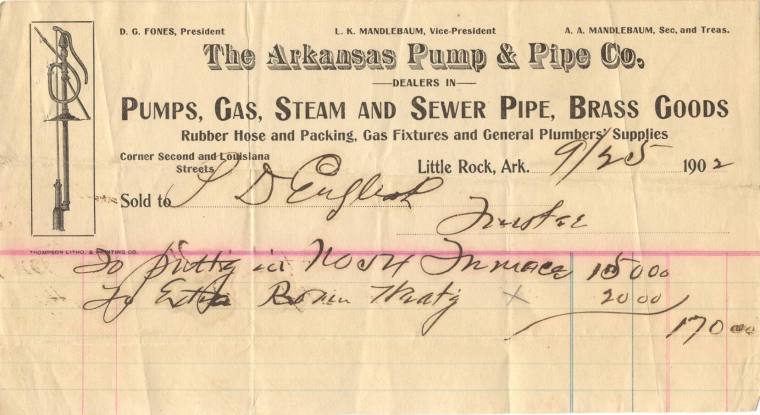 D. G. FONES, President L. K. MANDLEBAUM, Vice-President A. A. MANDLEBAUM, Sec, and Treas.
The Arkansas Pump & Pipe Co.
DEALERS IN
PUMPS, GAS, STEAM AND SEWER PIPE, BRASS GOODS
Rubber Hose and Packing, Gas Fixtures and General Plumbers' Supplies
Corner Second and Louisiana Streets
Little Rock, Ark. 9/25 1902
Sold to S D English
Trustee
THOMPSON LITHO. & PRINTING CO.
To putting in No 54 Furnace 150 00
To Extra Room 20 00
170 00